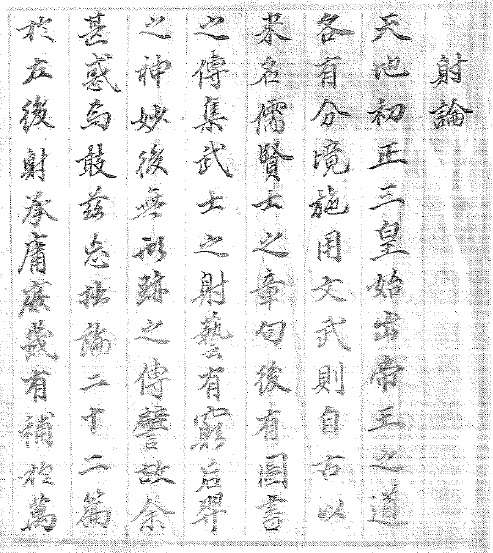 射論
天地初正三皇始出帝王之道
各有分境施用文武則自古以
来名儒賢士之章句後有圖書
之傳集武士之射藝有窮后羿
之神妙後無形跡之傳譬故余
甚惑焉敢茲忘拙論二十二篇
於左後射有補於萬